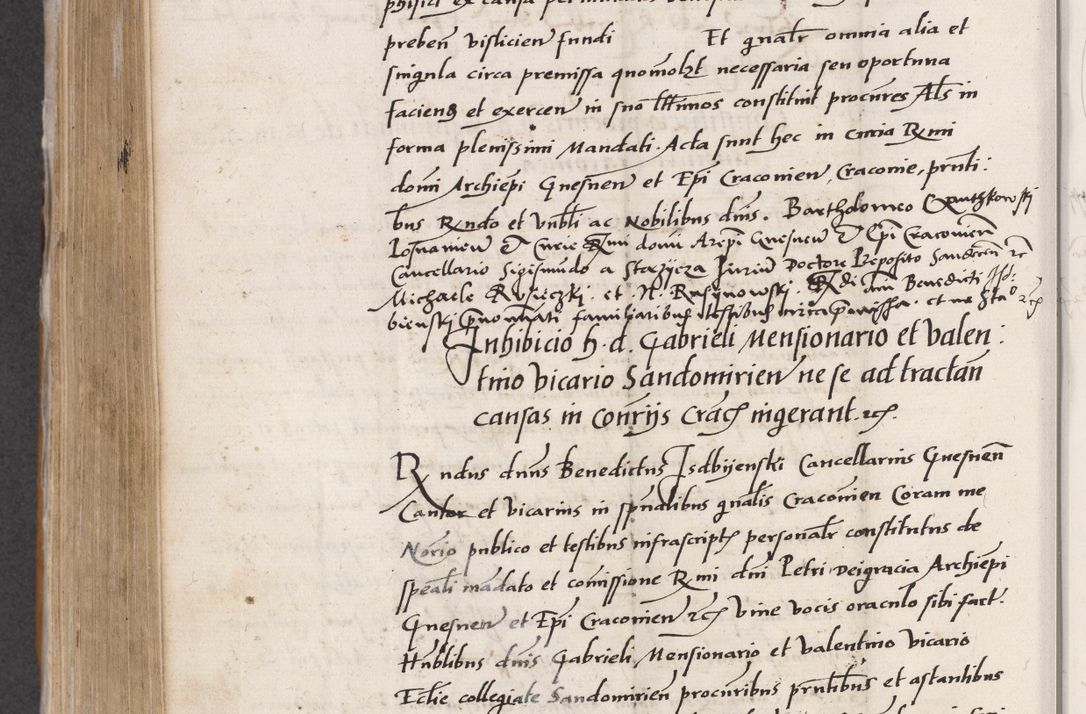 preben visliciem fundi Et gnalr omnia alia et
singula circa premissa quomolzt necessaria seu oportuna
faciend et exercen in suo lltimos constituit procures Als in
forma plenissimi Mandati Acta sunt hec in Curia Rmi
domi Archiepi Gnesnen et Epi Cracovien, Cracovie, pnti:
bus Rndo et Vnbli ac Nobilibus dnis. Bartholomeo
Posnanien Et Curie Rmi domi Arepi Gnesnen Et Epi Cracovien
Cancellario Sigismundo a Stazicza Juriu Doctore Preposito Sandecen rc
Michaele et N. Rusynowski. Rdi dni Benedicti Isd:
bienski familiaribus testibus circa premissa. et me Sta
Inhibicio h. d. Gabrieli Mensionario et Valen:
tino Vicario Sandomirien ne se ad tractan
causas in Conrijs Crac ingerant. rc.
Rndus dnus Benedictus Isdbijenski Cancellarius Gnesnen
Cantor et Vicarius in spnalibus gnalis Cracovien Coram me
Norio publico et testibus infrascript personalr constitutus de
speali mandato et comissione Rmi dni Petri Dei gracia Archiepi
Gnesnen et Epi Cracovien rc Vive vocis oraculo sibi fact.
Hnblibus dnis Gabrieli Mensionario et Valentino Vicario
Eclie collegiate Sandomirien procuribus pntibus et astantibus